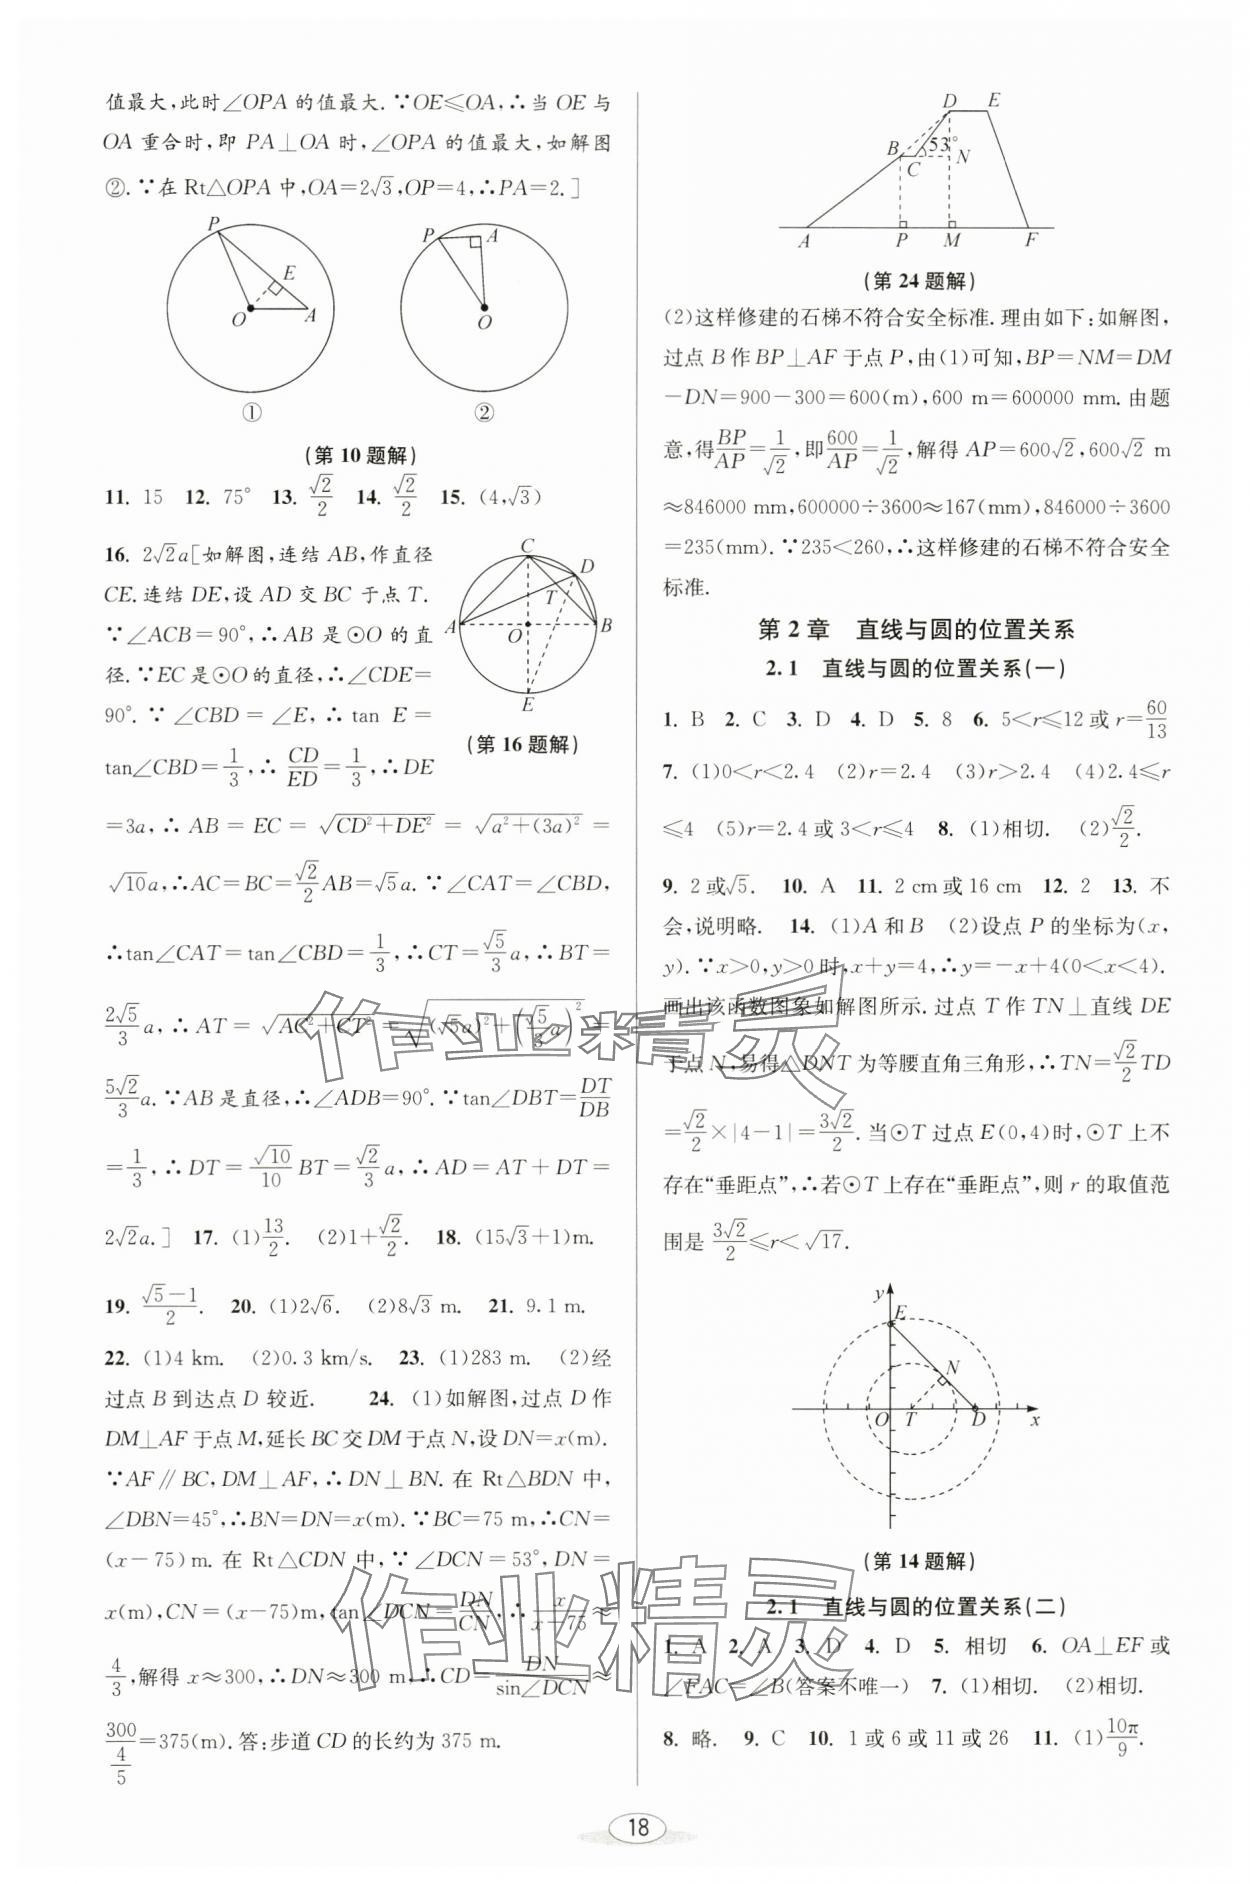 值最大,此时∠OPA 的值最大.∵OE≤OA,∴当 OE 与
OA 重合时,即 PA⊥OA 时,∠OPA 的值最大,如解图
②.∵在 Rt△OPA 中,OA=2√3,OP=4,∴PA=2.]
P
E
O
A
①
P
A
O
②
(第 10 题解)
11. 15 12. 75° 13. √2/2 14. √2/2 15. (4,√3)
16. 2√2a[如解图,连结 AB,作直径
CE.连结 DE,设 AD 交 BC 于点 T.
∵∠ACB=90°,∴AB 是⊙O 的直
径.∵EC是⊙O的直径,∴∠CDE=
90°.∵∠CBD=∠E,∴tan E=
tan∠CBD=1/3,∴CD/ED=1/3,∴DE
C
D
T
A
O
B
E
(第 16 题解)
=3a,∴AB=EC=√(CD²+DE²)=√(a²+(3a)²)=
√10a,∴AC=BC=√2/2AB=√5a.∵∠CAT=∠CBD,
∴tan∠CAT=tan∠CBD=1/3,∴CT=√5/3a,∴BT=
2√5/3a,∴AT=√(AC²+CT²)=√((√5a)²+(√5/3a)²)=
5√2/3a.∵AB是直径,∴∠ADB=90°.∵tan∠DBT=DT/DB
=1/3,∴DT=√10/10BT=√2/3a,∴AD=AT+DT=
2√2a.] 17. (1)13/2. (2)1+√2/2. 18. (15√3+1)m.
19. (√5-1)/2. 20. (1)2√6. (2)8√3 m. 21. 9.1 m.
22. (1)4 km. (2)0.3 km/s. 23. (1)283 m. (2)经
过点 B 到达点 D 较近. 24. (1)如解图,过点 D 作
DM⊥AF于点M,延长BC交DM于点N,设DN=x(m).
∵AF∥BC,DM⊥AF,∴DN⊥BN.在 Rt△BDN 中,
∠DBN=45°,∴BN=DN=x(m).∵BC=75 m,∴CN=
(x-75)m.在 Rt△CDN 中,∵∠DCN=53°,DN=
x(m),CN=(x-75)m,tan∠DCN=DN/CN,∴x/(x-75)≈
4/3,解得 x≈300,∴DN≈300 m,∴CD=DN/sin∠DCN≈
300/(4/5)=375(m).答:步道 CD 的长约为 375 m.
D
E
B
53°
C
N
A
P
M
F
(第 24 题解)
(2)这样修建的石梯不符合安全标准.理由如下:如解图,
过点 B 作 BP⊥AF 于点 P,由(1)可知,BP=NM=DM
-DN=900-300=600(m),600 m=600000 mm.由题
意,得BP/AP=1/√2,即600/AP=1/√2,解得 AP=600√2,600√2 m
≈846000 mm,600000÷3600≈167(mm),846000÷3600
=235(mm).∵235<260,∴这样修建的石梯不符合安全
标准.
第 2 章 直线与圆的位置关系
2.1 直线与圆的位置关系(一)
1. B 2. C 3. D 4. D 5. 8 6. 5<r≤12或r=60/13
7. (1)0<r<2.4 (2)r=2.4 (3)r>2.4 (4)2.4≤r
≤4 (5)r=2.4或3<r≤4 8. (1)相切. (2)√2/2.
9. 2或√5. 10. A 11. 2 cm或16 cm 12. 2 13. 不
会,说明略. 14. (1)A 和 B (2)设点 P 的坐标为(x,
y).∵x>0,y>0时,x+y=4,∴y=-x+4(0<x<4).
画出该函数图象如解图所示.过点 T 作 TN⊥直线 DE
于点 N,易得△DNT 为等腰直角三角形,∴TN=√2/2TD
=√2/2×|4-1|=3√2/2.当⊙T 过点 E(0,4)时,⊙T 上不
存在“垂距点”,∴若⊙T 上存在“垂距点”,则 r 的取值范
围是 3√2/2≤r<√17.
y
E
N
O
T
D
x
(第 14 题解)
2.1 直线与圆的位置关系(二)
1. A 2. A 3. D 4. D 5. 相切 6. OA⊥EF 或
∠FAC=∠B(答案不唯一) 7. (1)相切. (2)相切.
8. 略. 9. C 10. 1 或 6 或 11 或 26 11. (1)10π/9.
18
作业精灵
作业精灵